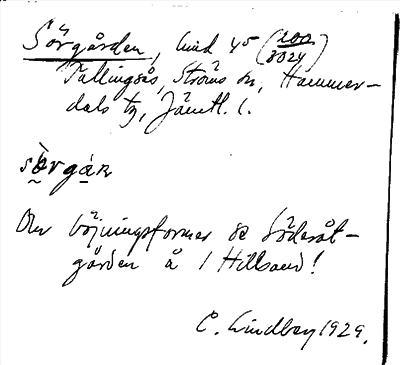 Sörgården, lind 45 (200/3024)
Tullingsås, Ströms sn, Hammer-
dals tg, Jämtl. l.
sörgáṛn
Om böjningsformer se Söderåt-
gården å 1 Hillsand!
C. Lindberg 1929.